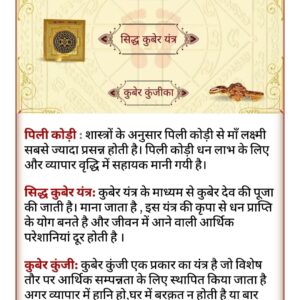 सिद्ध कुबेर यंत्र
कुबेर कुंजीका
पिली कोड़ी : शास्त्रों के अनुसार पिली कोड़ी से माँ लक्ष्मी
सबसे ज्यादा प्रसन्न होती है। पिली कोड़ी धन लाभ के लिए
और व्यापार वृद्धि में सहायक मानी गयी है।
सिद्ध कुबेर यंत्र: कुबेर यंत्र के माध्यम से कुबेर देव की पूजा
की जाती है। माना जाता है , इस यंत्र की कृपा से धन प्राप्ति
के योग बनते है और जीवन में आने वाली आर्थिक
परेशानियां दूर होती है ।
कुबेर कुंजी: कुबेर कुंजी एक प्रकार का यंत्र है जो विशेष
तौर पर आर्थिक सम्पन्नता के लिए स्थापित किया जाता है
अगर व्यापार में हानि हो,घर में बरक़त न होती है या बार